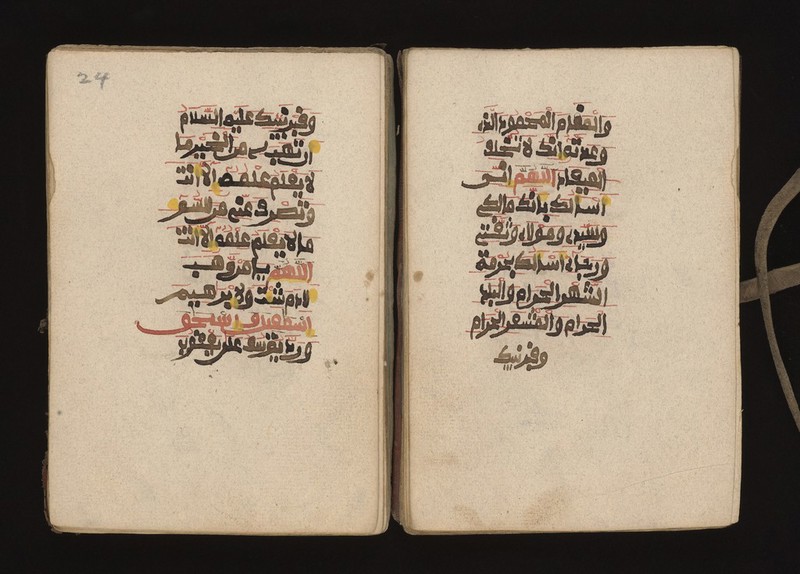 والمقام المحمود الذي
وعدته انك لا تخلف
الميعاد اللهم اني
اسالك بانك مالكي
وسيدي ومولاي وثقتي
ورجاءي اسالك بحرمة
الشهر الحرام والبلد
الحرام والمشعر الحرام
وقبر نبيك
24
وقبر نبيك عليه السلام
ان تهب لي من الخير ما
لا يعلم علمه الا انت
وتصرف عني من السوء
ما لا يعلم علمه الا انت
اللهم يا من وهب
لادم شيث ولابرهيم
اسمعيل واسحق
ورد يوسف على يعقوب